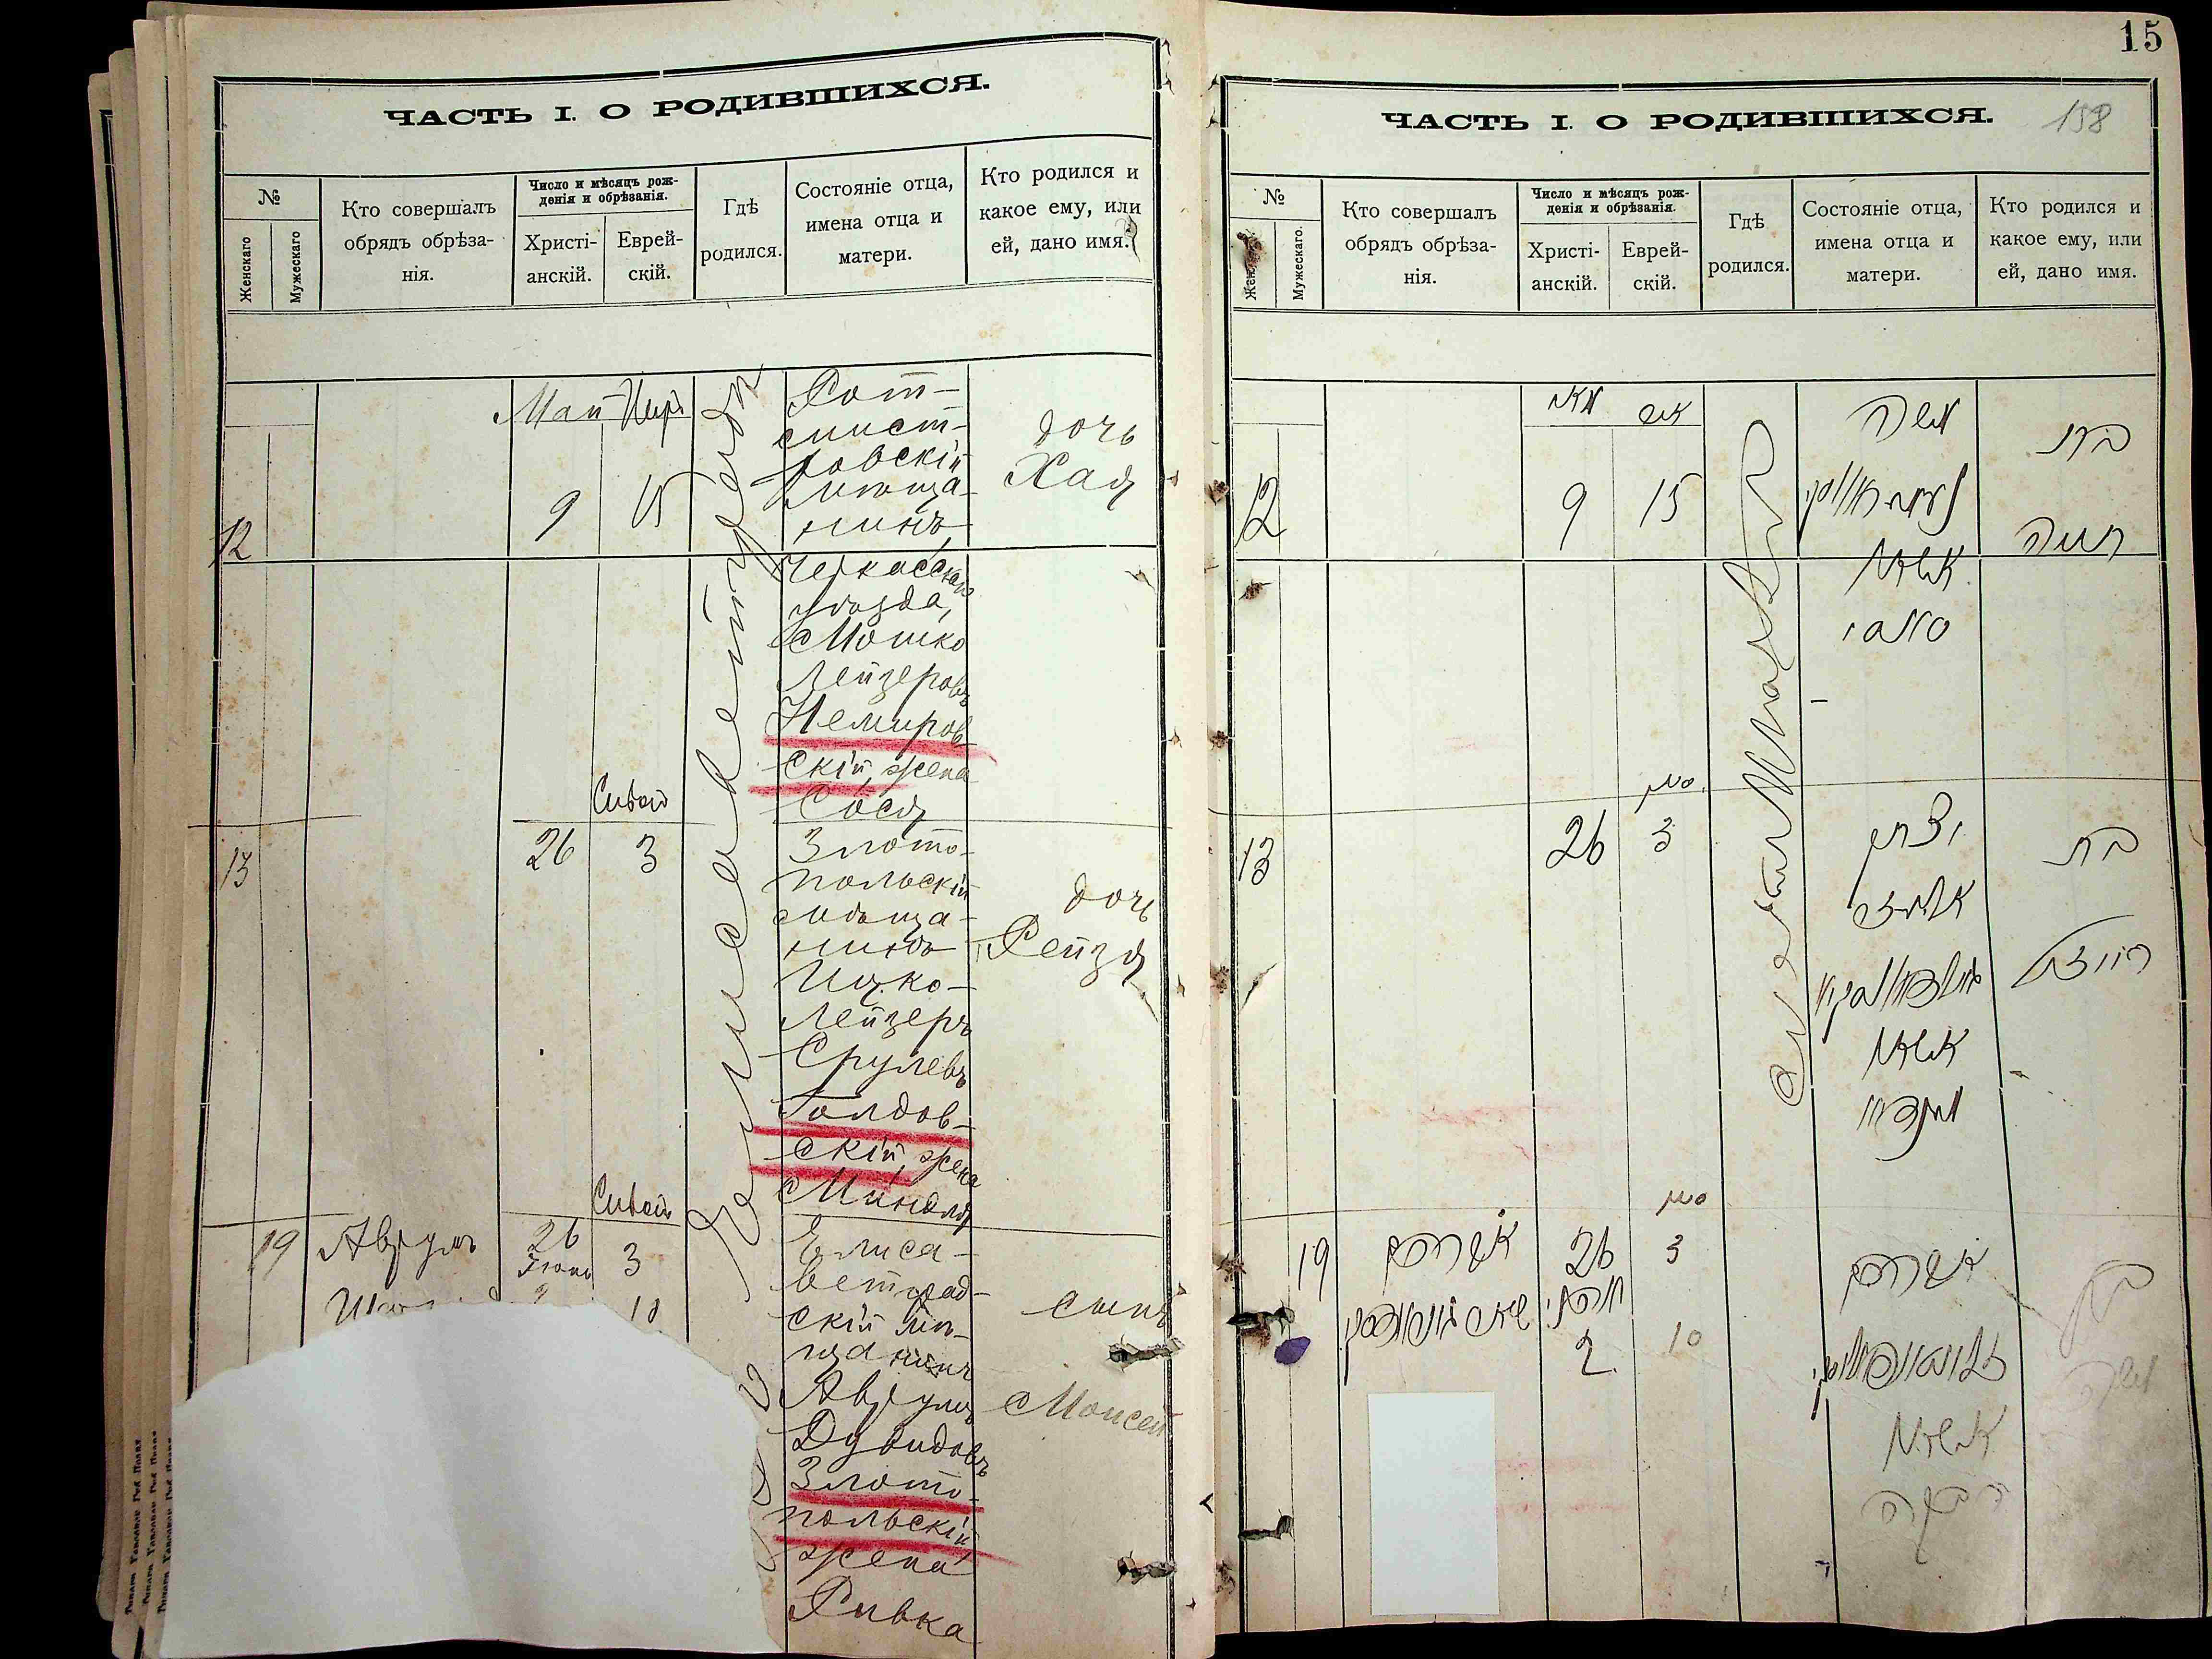 ЧАСТЬ I. О РОДИВШИХСЯ.
№
Женскаго
Мужескаго
Кто совершалъ
обрядъ обрѣза-
нія.
Число и мѣсяцъ рож-
денія и обрѣзанія.
Христі-
анскій.
Еврей-
скій.
Гдѣ
родился.
Состояніе отца,
имена отца и
матери.
Кто родился и
какое ему, или
ей, дано имя.
Май
12
9
15
Рот-
мист-
ровскій
мѣща-
нинъ
Черкасскаго
уѣзда,
Мошко
Лейзеровъ
Немиров-
скій, жена
Сося
дочь
Хая
Сивон
13
26
3
Злото-
польскій
мѣща-
нинъ
Ицко-
Лейзеръ
Срулевъ
Голдов-
скій, жена
Миндля
дочь
Рейзя
Сивон
19
Аврумъ
26
3
10
Елиса-
ветград-
скій мѣ-
щанинъ
Аврумъ
Дувидовъ
Злото-
польскій
жена
Ривка
сынъ
Моисей
15
158
ЧАСТЬ I. О РОДИВШИХСЯ.
№
Мужескаго.
Кто совершалъ
обрядъ обрѣза-
нія.
Число и мѣсяцъ рож-
денія и обрѣзанія.
Христі-
анскій.
Еврей-
скій.
Гдѣ
родился.
Состояніе отца,
имена отца и
матери.
Кто родился и
какое ему, или
ей, дано имя.
12
9
15
משה
סאסי
בת
חיה
סיון
13
26
3
יצחק
אליעזר
בת
רייזא
סיון
19
אברהם
26
3
2
10
אברהם
זלאטאפאלסקי
רבקה
בן
משה